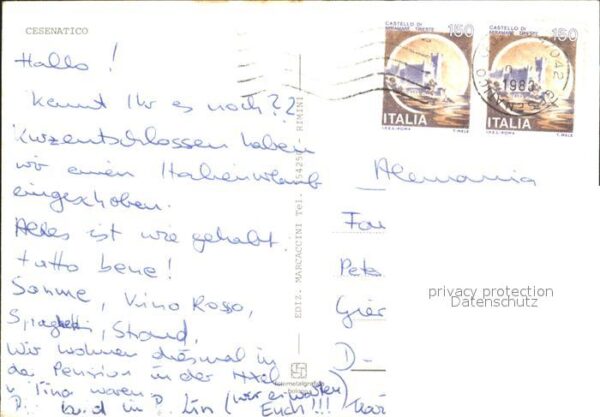 CESENATICO
Hallo!
Kennt Ihr es noch??
Kurzentschlossen haben
wir einen Italienurlaub
eingeschoben.
Alles ist wie gehabt.
tutto bene!
Sonne, Vino Rosso,
Spaghetti, Strand.
Wir wohnen diesmal in
der Pension in der
Tina waren (wir erwarten
Euch!!!)
EDIZ. MARCACCINI Tel. RIMINI
CASTELLO DI
MIRAMARE TRIESTE
150
ITALIA
I.P.Z.S. ROMA
CASTELLO DI
MIRAMARE TRIESTE
150
ITALIA
I.P.Z.S. ROMA
Alemania
Fam
Pete
Gier
D-
privacy protection
Datenschutz